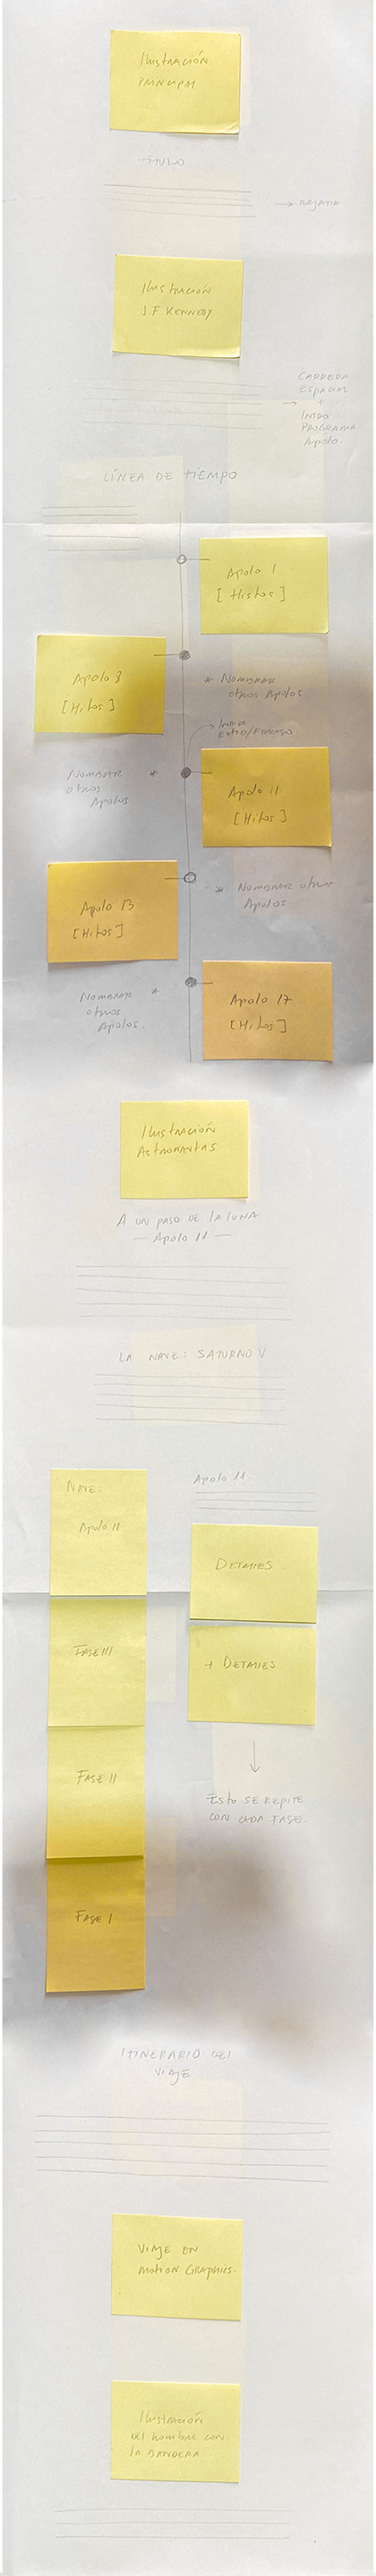 Ilustración
PRINCIPAL
TÍTULO
→ BAJATA
Ilustración
J.F KENNEDY
CARRERA
ESPACIAL
+
INTRO
PROGRAMA
Apolo.
LÍNEA DE TIEMPO
Apolo 1
[Hitos]
Apolo 8
[Hitos]
* NOMBRAR
otros Apolos
Éxito/FRACASO
NOMBRAR *
otros
Apolos
Apolo 11
[Hitos]
Apolo 13
[Hitos]
* NOMBRAR otros
Apolos
NOMBRAR *
otros
Apolos.
Apolo 17
[Hitos]
Ilustración
ASTRONAUTAS
A UN PASO DE LA LUNA
— Apolo 11 —
LA NAVE: SATURNO V
NAVE:
Apolo 11
Apolo 11
DETALLES.
FASE III
+ DETALLES
FASE II
Esto SE REPITE
CON CADA FASE.
FASE I
ITINERARIO DEL
VIAJE
VIAJE EN
MOTION GRAPHICS.
Ilustración
DEL HOMBRE CON
LA BANDERA